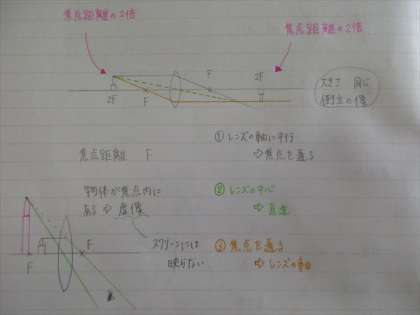 焦点距離の2倍
焦点距離の2倍
F
2F
2F
F
大きさ 同じ
倒立の像
焦点距離 F
① レンズの軸に平行
⇨ 焦点を通る
物体が焦点内に
ある ⇨ 虚像
② レンズの中心
⇨ 直進
スクリーンには
映らない
③ 焦点を通る
F
F